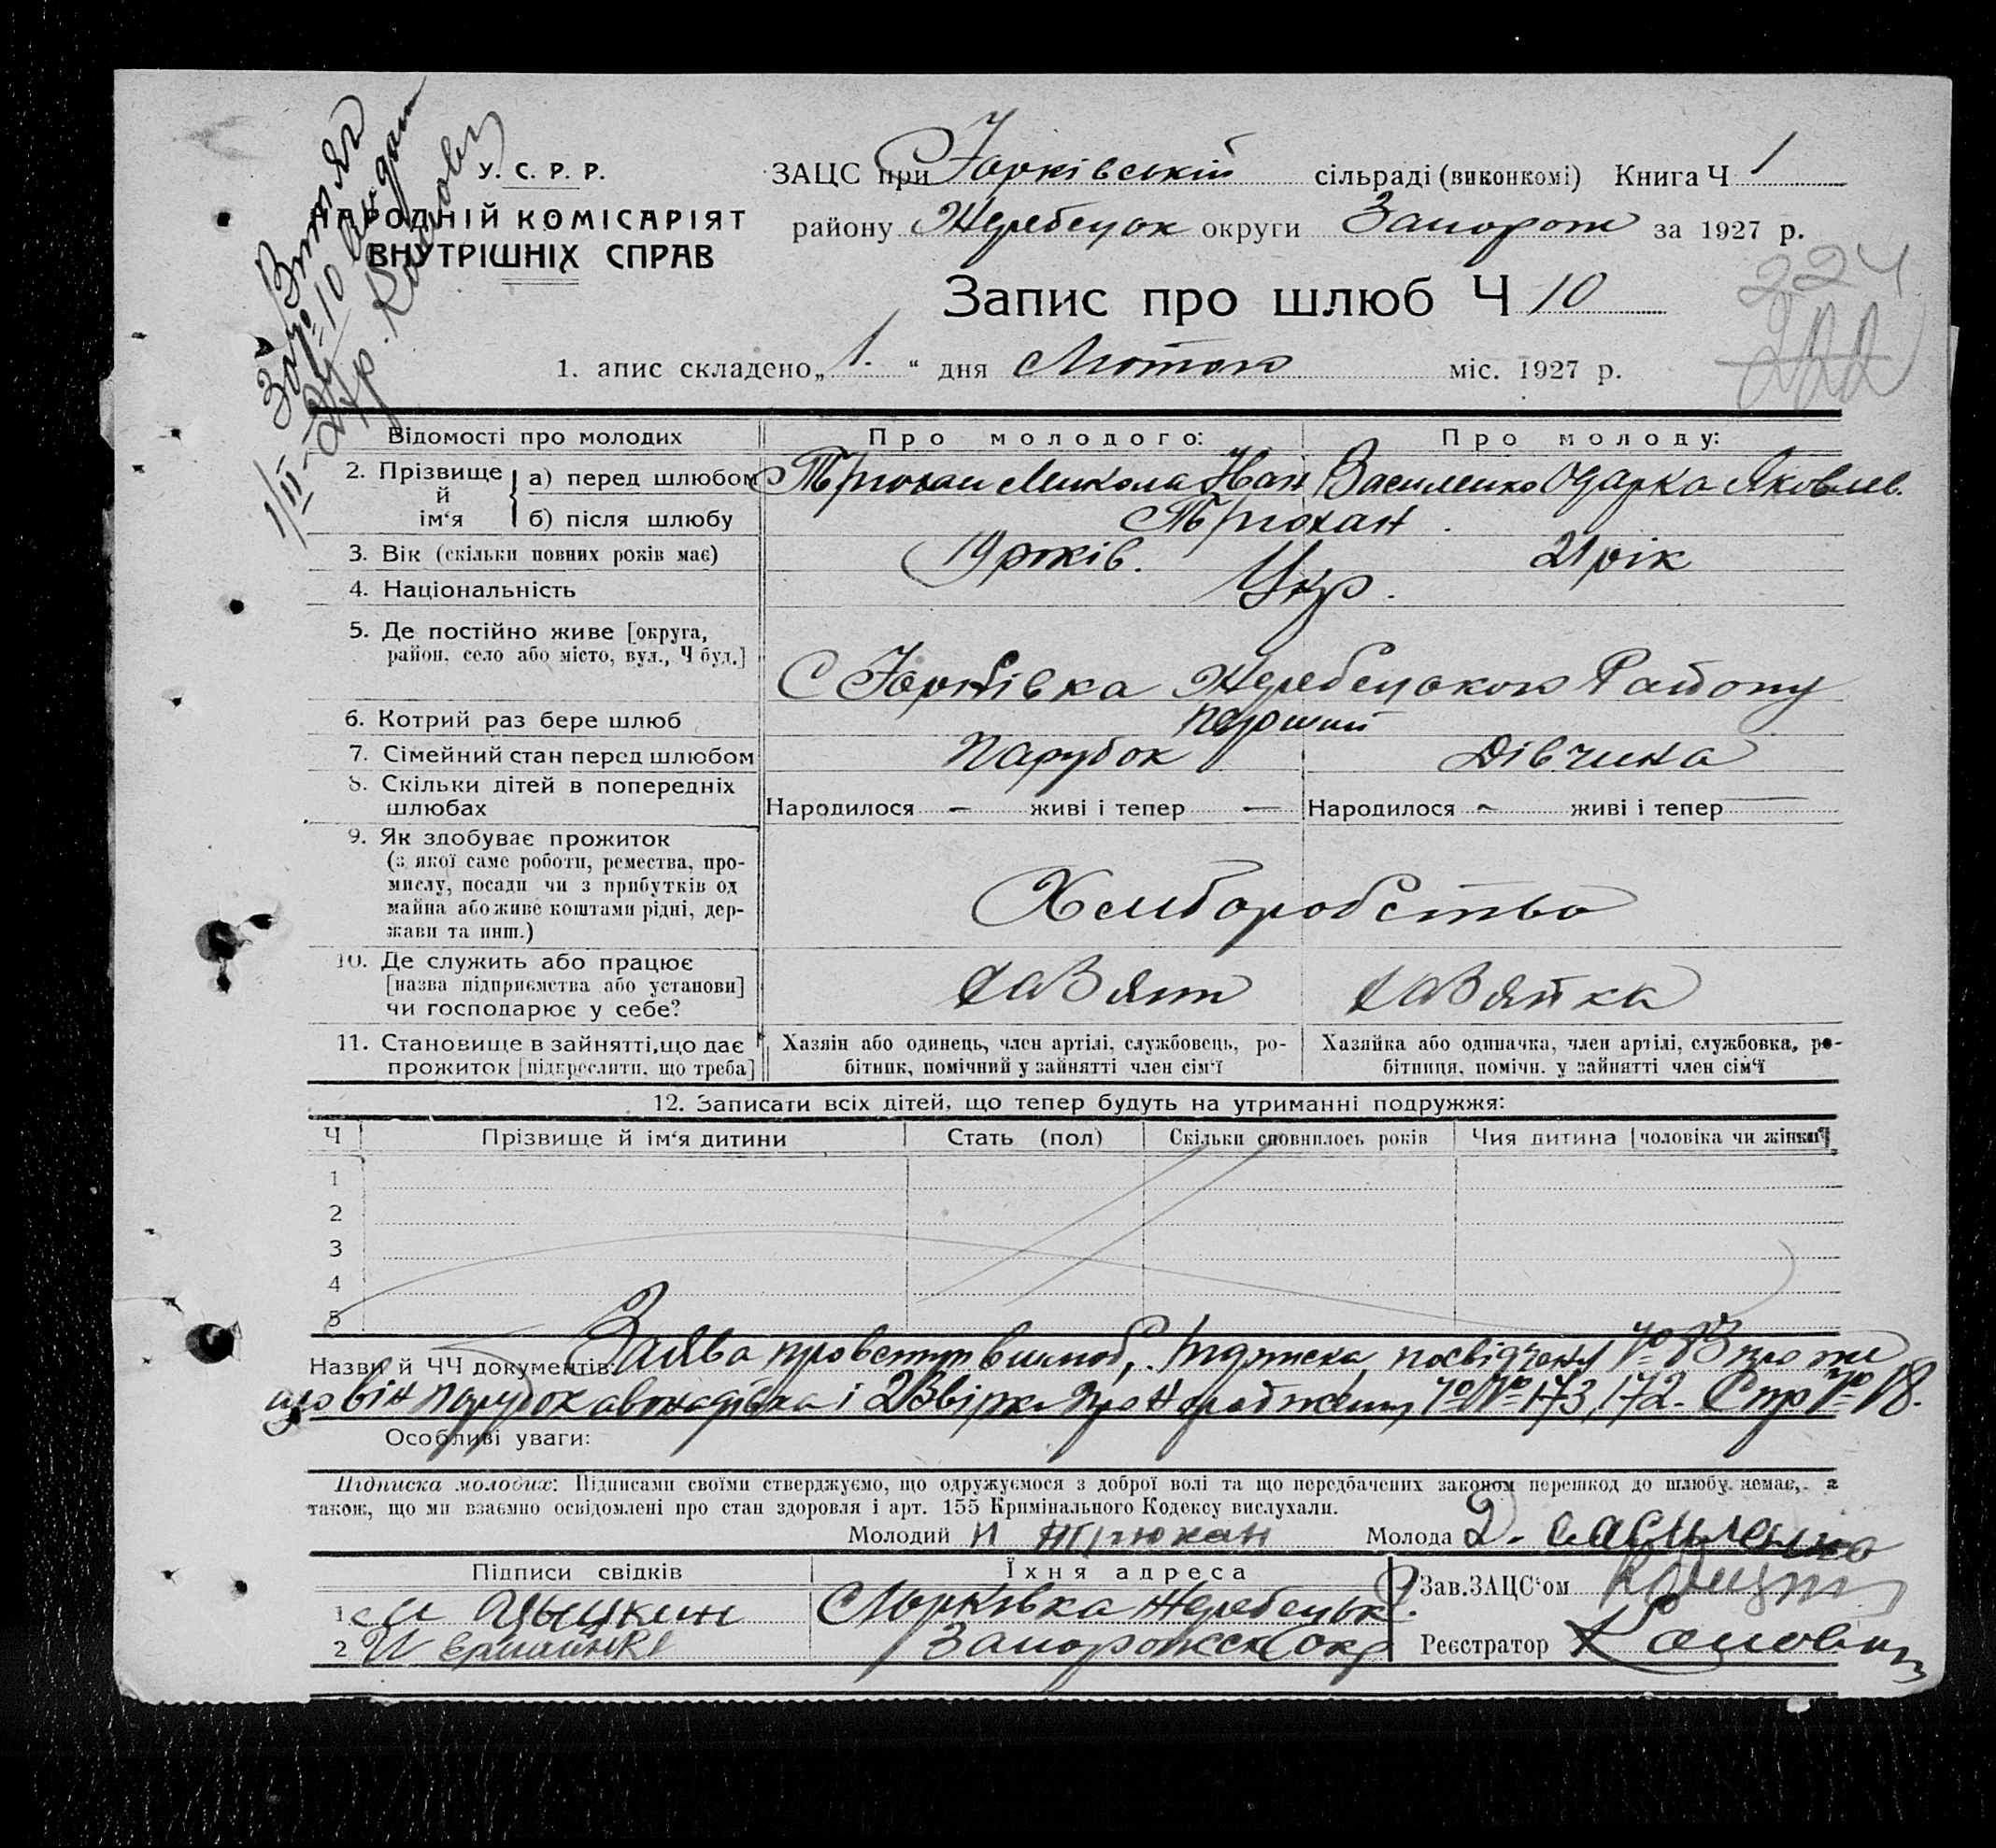 Витяг
За № 10 видан
1/II-27 р.
У. С. Р. Р.
НАРОДНІЙ КОМІСАРІЯТ
ВНУТРІШНІХ СПРАВ
ЗАЦС при Юрківській сільраді (виконкомі) Книга Ч 1
району Жеребецьк округи Запорож за 1927 р.
224
222
Запис про шлюб Ч 10
1. апис складено „1.“ дня Лютого міс. 1927 р.
Відомості про молодих Про молодого: Про молоду:
2. Прізвище й ім‘я а) перед шлюбом Трюхан Микола Іван Василенко Одарка Яковлев.
б) після шлюбу Трюхан.
3. Вік (скільки повних років має) 19 років. 21 рік
4. Національність Укр.
5. Де постійно живе [округа,
район, село або місто, вул., Ч буд.]
С Юрківка Жеребецького Району
6. Котрий раз бере шлюб перший
7. Сімейний стан перед шлюбом Парубок Дівчина
8. Скільки дітей в попередніх
шлюбах Народилося — живі і тепер — Народилося — живі і тепер —
9. Як здобуває прожиток
(з якої саме роботи, ремества, про-
мислу, посади чи з прибутків од
майна або живе коштами рідні, дер-
жави та инш.)
Хлиборобство
10. Де служить або працює
[назва підприємства або установи]
чи господарює у себе?
11. Становище в зайнятті, що дає Хазяін або одинець, член артілі, службовець, ро- Хазяйка або одиначка, член артілі, службовка, ро-
прожиток [підкреслити, що треба] бітник, помічний у зайнятті член сім‘ї бітниця, помічн. у зайнятті член сім‘ї
12. Записати всіх дітей, що тепер будуть на утриманні подружжя:
Ч Прізвище й ім‘я дитини Стать (пол) Скільки сповнилось років Чия дитина [чоловіка чи жінки]
1
2
3
4
5
Назви й ЧЧ документів: Заява про вступ в шлюб, Підписка, посвідченя № 83 про те
що він парубок а вона дівка і 2 Звірки про Народження №№ 173, 172. Стр № 18.
Особливі уваги:
Підписка молодих: Підписами своїми стверджуємо, що одружуємося з доброї волі та що передбачених законом перешкод до шлюбу немає, а
також, що ми взаємно освідомлені про стан здоровля і арт. 155 Кримінального Кодексу вислухали.
Молодий Н Трюхан Молода Д. Василенко
Підписи свідків Їхня адреса Зав. ЗАЦС‘ом
1 С Юрківка Жеребецьк.
2 Запорожск Окр Реєстратор